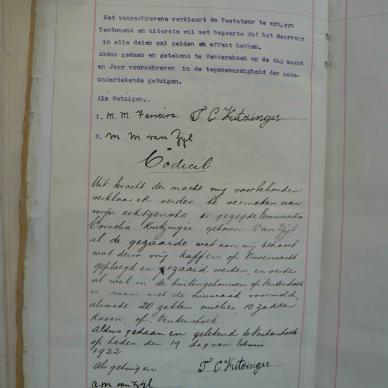 Het voorschrevene verklaart de Testateur te zyn, zyn
Testament en uiterste wil met begeerte dat het daarety
in alle delen zal gelden en effekt hebben.
Aldus gedaan en getekend te Ventershoek op de dag maand
en Jaar voorschreven in de tegenwoordigheid der nede-
ondertekende getuigen.
Als Getuigen.
1. M. M. Ferreira T C Kutzinger
2. M. M. van Zijl
Codicil
Uit kracht der macht mij voorbehouden
verklaar ik verder te vermaken aan
mijn echtgenote de gezegde Emmerentia
Cornelia Kutzinger geboren Van Zijl
al de gezaaide wat aan mij behoort
wat deur mij kaffers op
geploegd en gezaaid werden, en verder
al wat in de buitengebouwen op Ventershoek
is zaam met de huisraad voormeld,
alsmede 20 zakken mielies 10 zakken
koorn op Ventershoek.
Aldus gedaan en getekend te Ventershoek
op heden den 19 dag van Februarie
1922
Als getuigen T. C Kutzinger
A.M. van Zijl